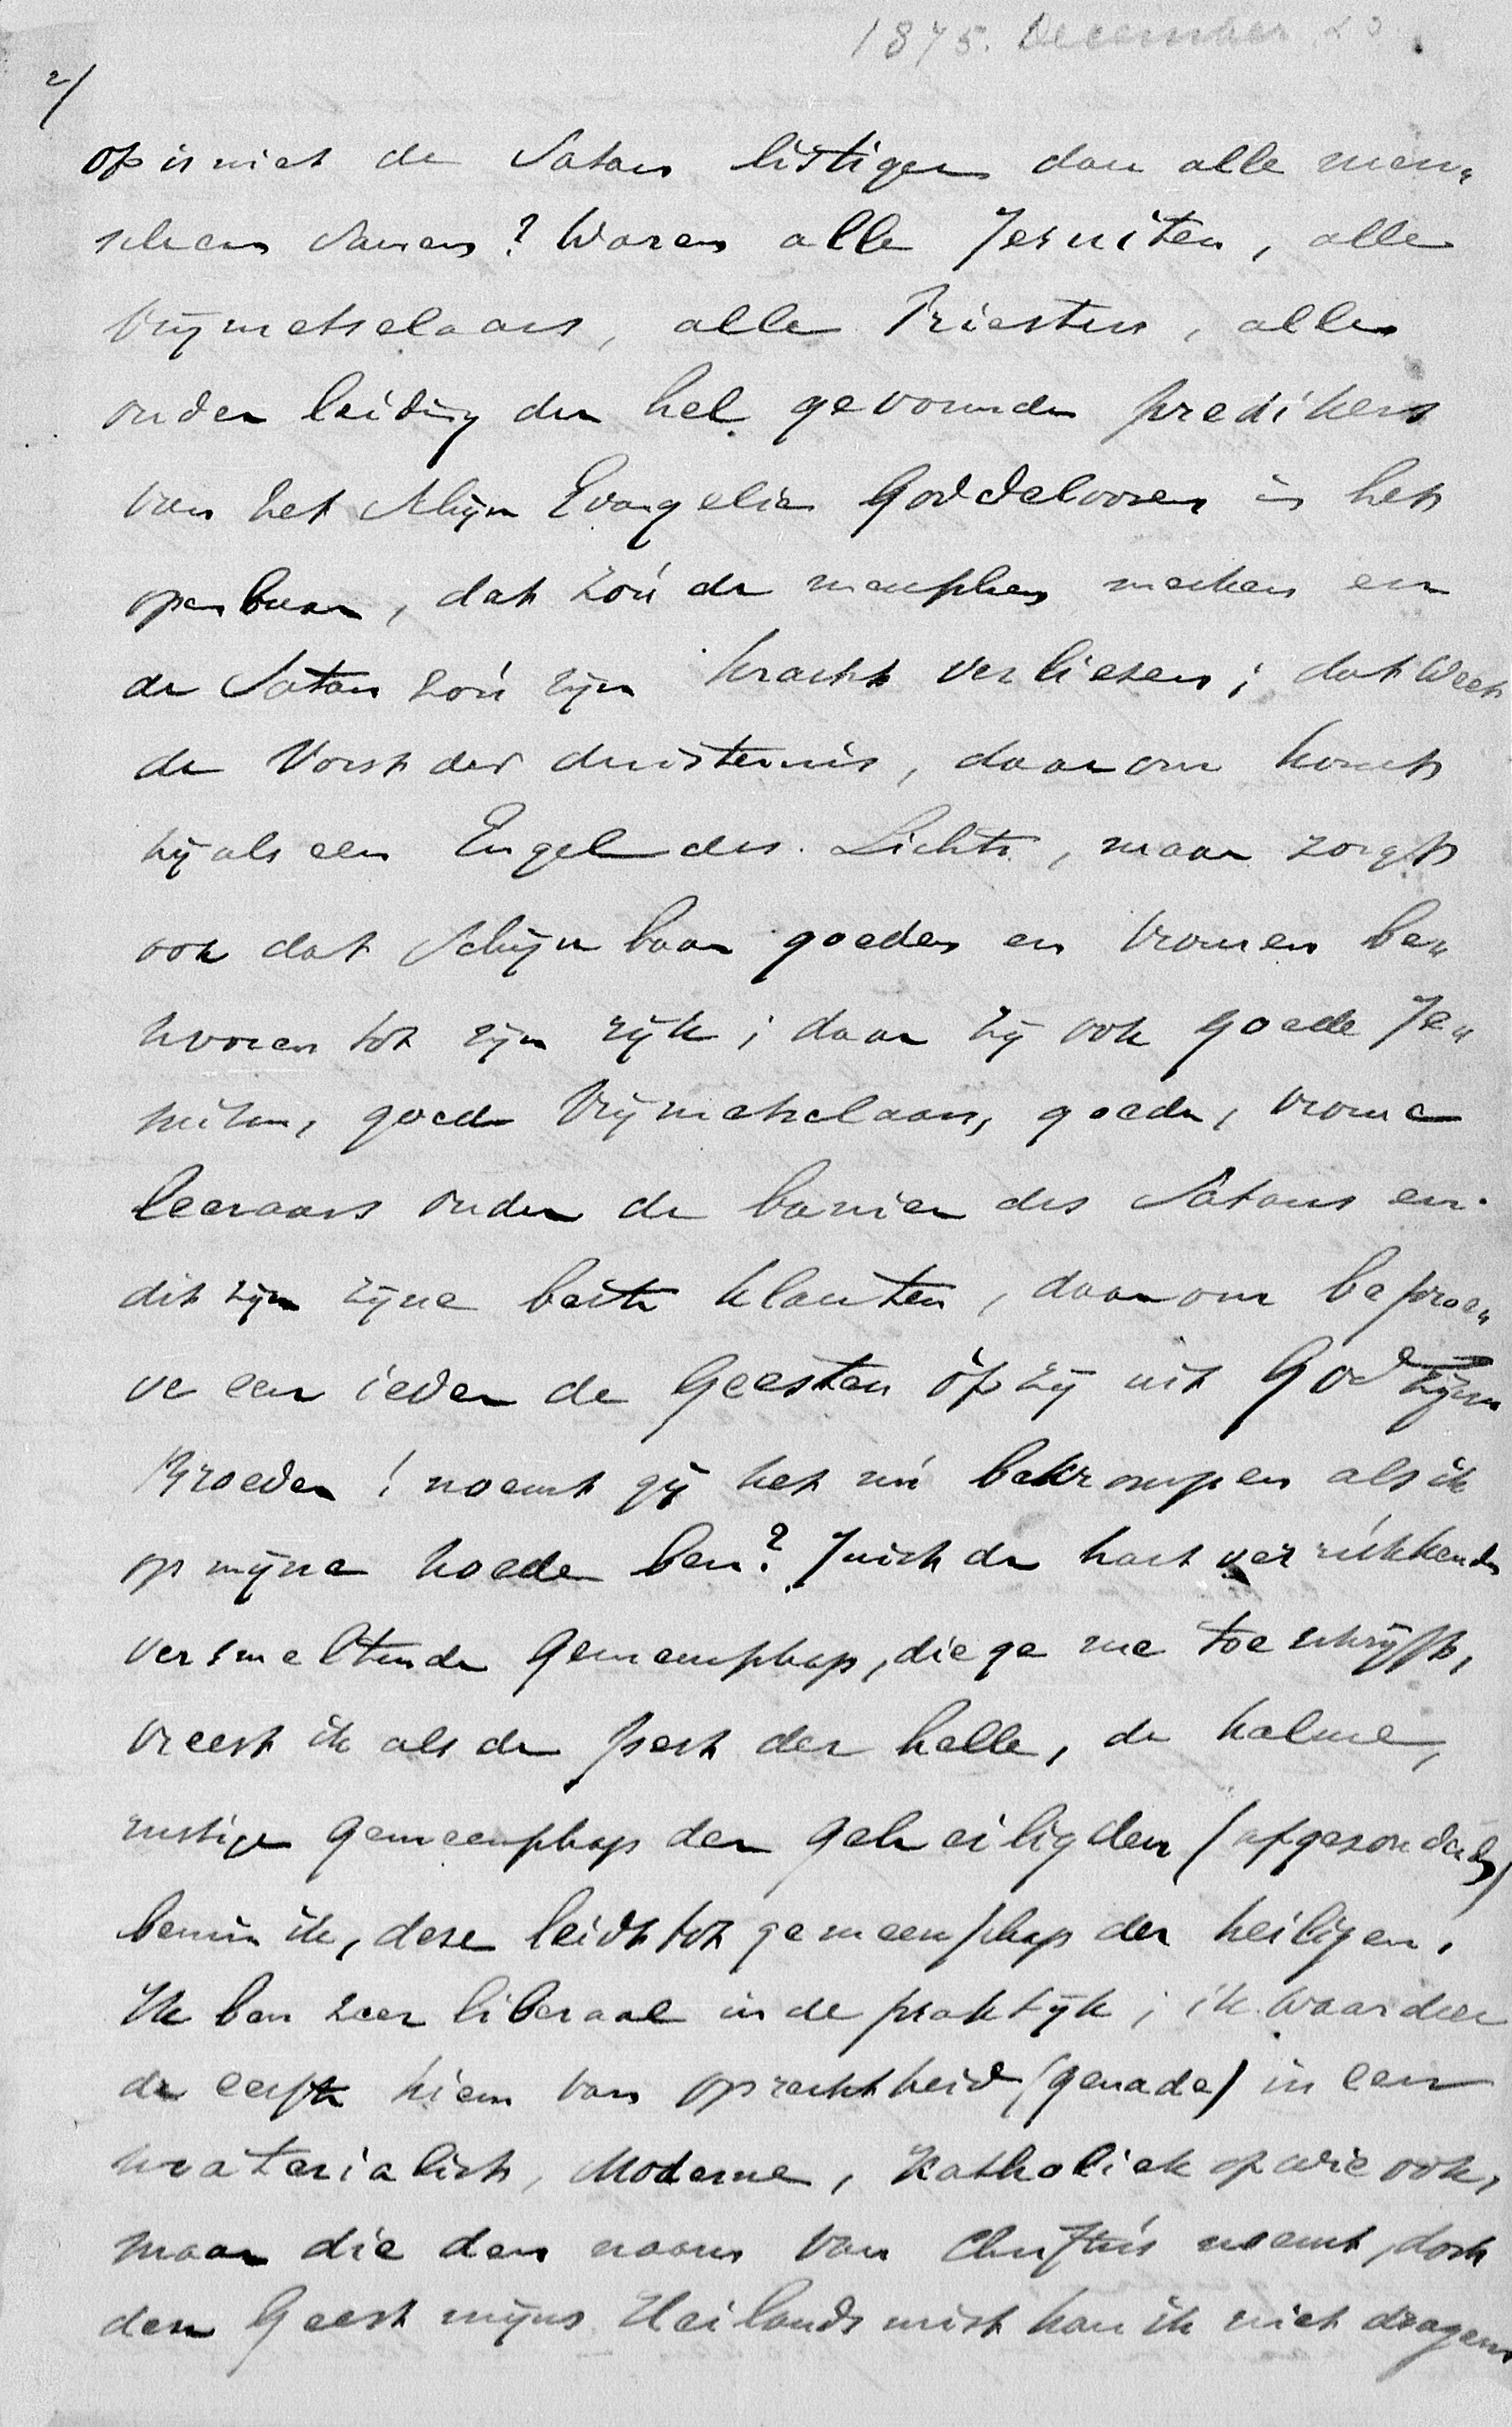 1875. December 20.
2/
of is niet de Satan listiger dan alle men„
schen samen? Waren alle Jesuiten, alle
Vrijmetselaars, alle Priesters, alle
onder leiding der hel gevormde predikers
van het schijn Evangelie Goddeloozen in het
openbaar, dat zoú de menschen merken en
de Satan zoú zijn kracht verliezen; dat weet
de Vorst der duisternis, daarom komt
hij als een Engel des Lichts, maar zorgt
ook dat schijnbaar goeden en vromen be„
hooren tot zijn rijk; daar zij ook goede Je„
suiten, goede Vrijmetselaars, goede, vrome
leeraars onder de banier des Satans en
dit zijn zijne beste klanten, daarom beproe„
ve een ieder de Geesten óf zij uit God zijn
Broeder! noemt gij het nú bekrompen als ik
op mijne hoede ben? Juist de hart verrúkkende
versmeltende Gemeenschap, die ge me toeschrijft,
vreest ik als de pest der helle, de kalme,
rustige Gemeenschap der geheiligden (afgezonderden)
bemin ik, deze leidt tot gemeenschap der heiligen.
Ik ben zeer liberaal in de praktijk; ik waardeer
de eerste kiem van oprechtheid (genade) in een
materialist, Moderne, Katholiek of wie ook,
maar die den naam van Christús noemt, doch
den Geest mijns Heilands mist kan ik niet dragen